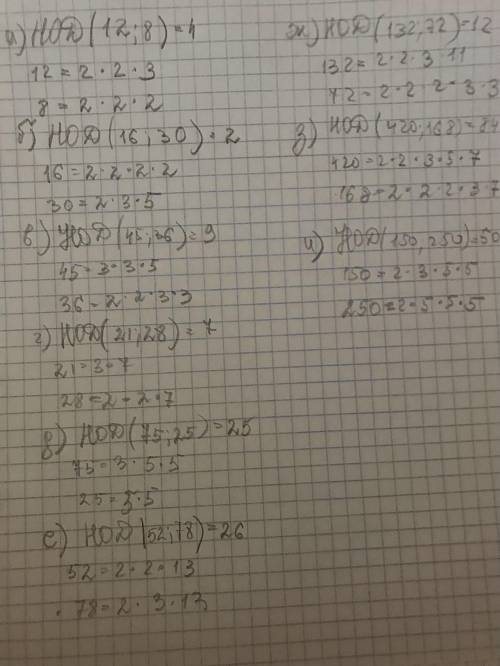 а) НОД(12;8)=4
12=2·2·3
8=2·2·2
б) НОД(16;30)=2
16=2·2·2·2
30=2·3·5
в) НОД(45;36)=9
45=3·3·5
36=2·2·3·3
г) НОД(21;28)=7
21=3·7
28=2·2·7
д) НОД(75;25)=25
75=3·5·5
25=5·5
е) НОД(52;78)=26
52=2·2·13
78=2·3·13
ж) НОД(132,72)=12
132=2·2·3·11
72=2·2·2·3·3
з) НОД(420,168)=84
420=2·2·3·5·7
168=2·2·2·3·7
и) НОД(150,250)=50
150=2·3·5·5
250=2·5·5·5